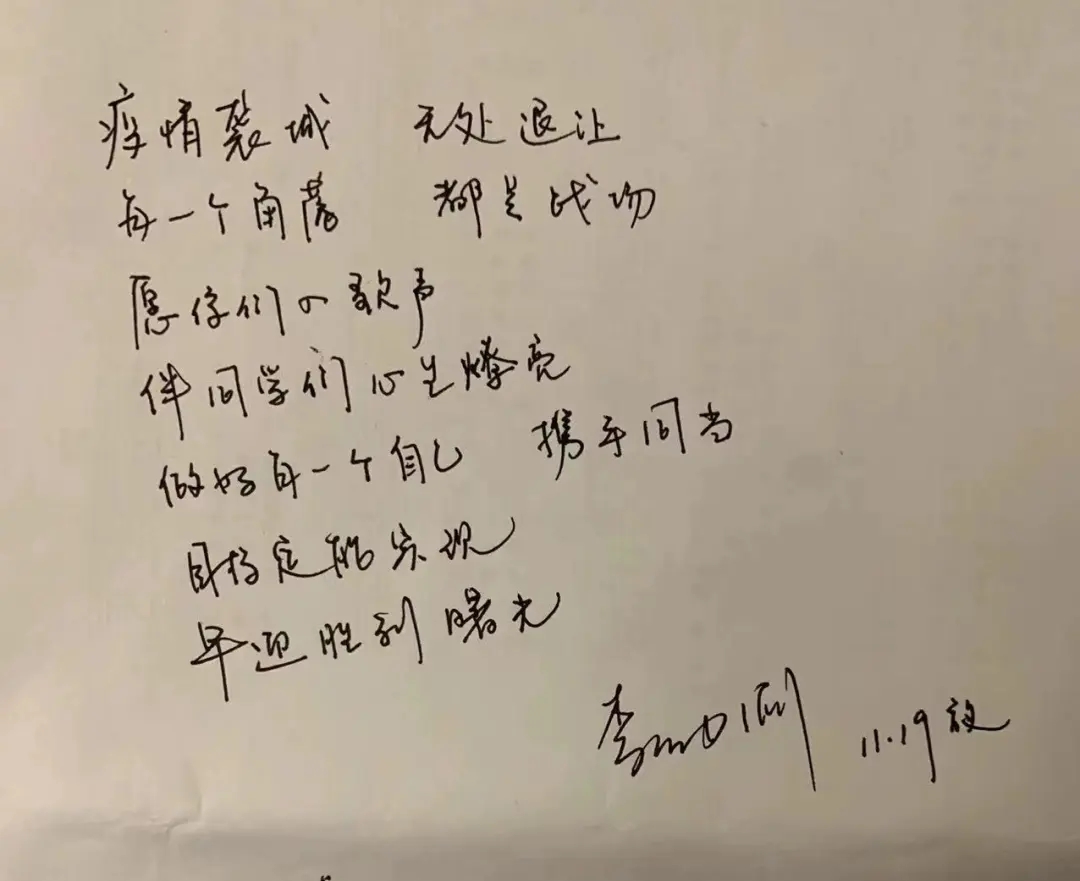 疫情袭城 无处退让
每一个角落 都是战场
愿你们的歌声
伴同学们心生燎亮
做好每一个自己 携手同当
目标定能实现
早迎胜利曙光
李 11.19